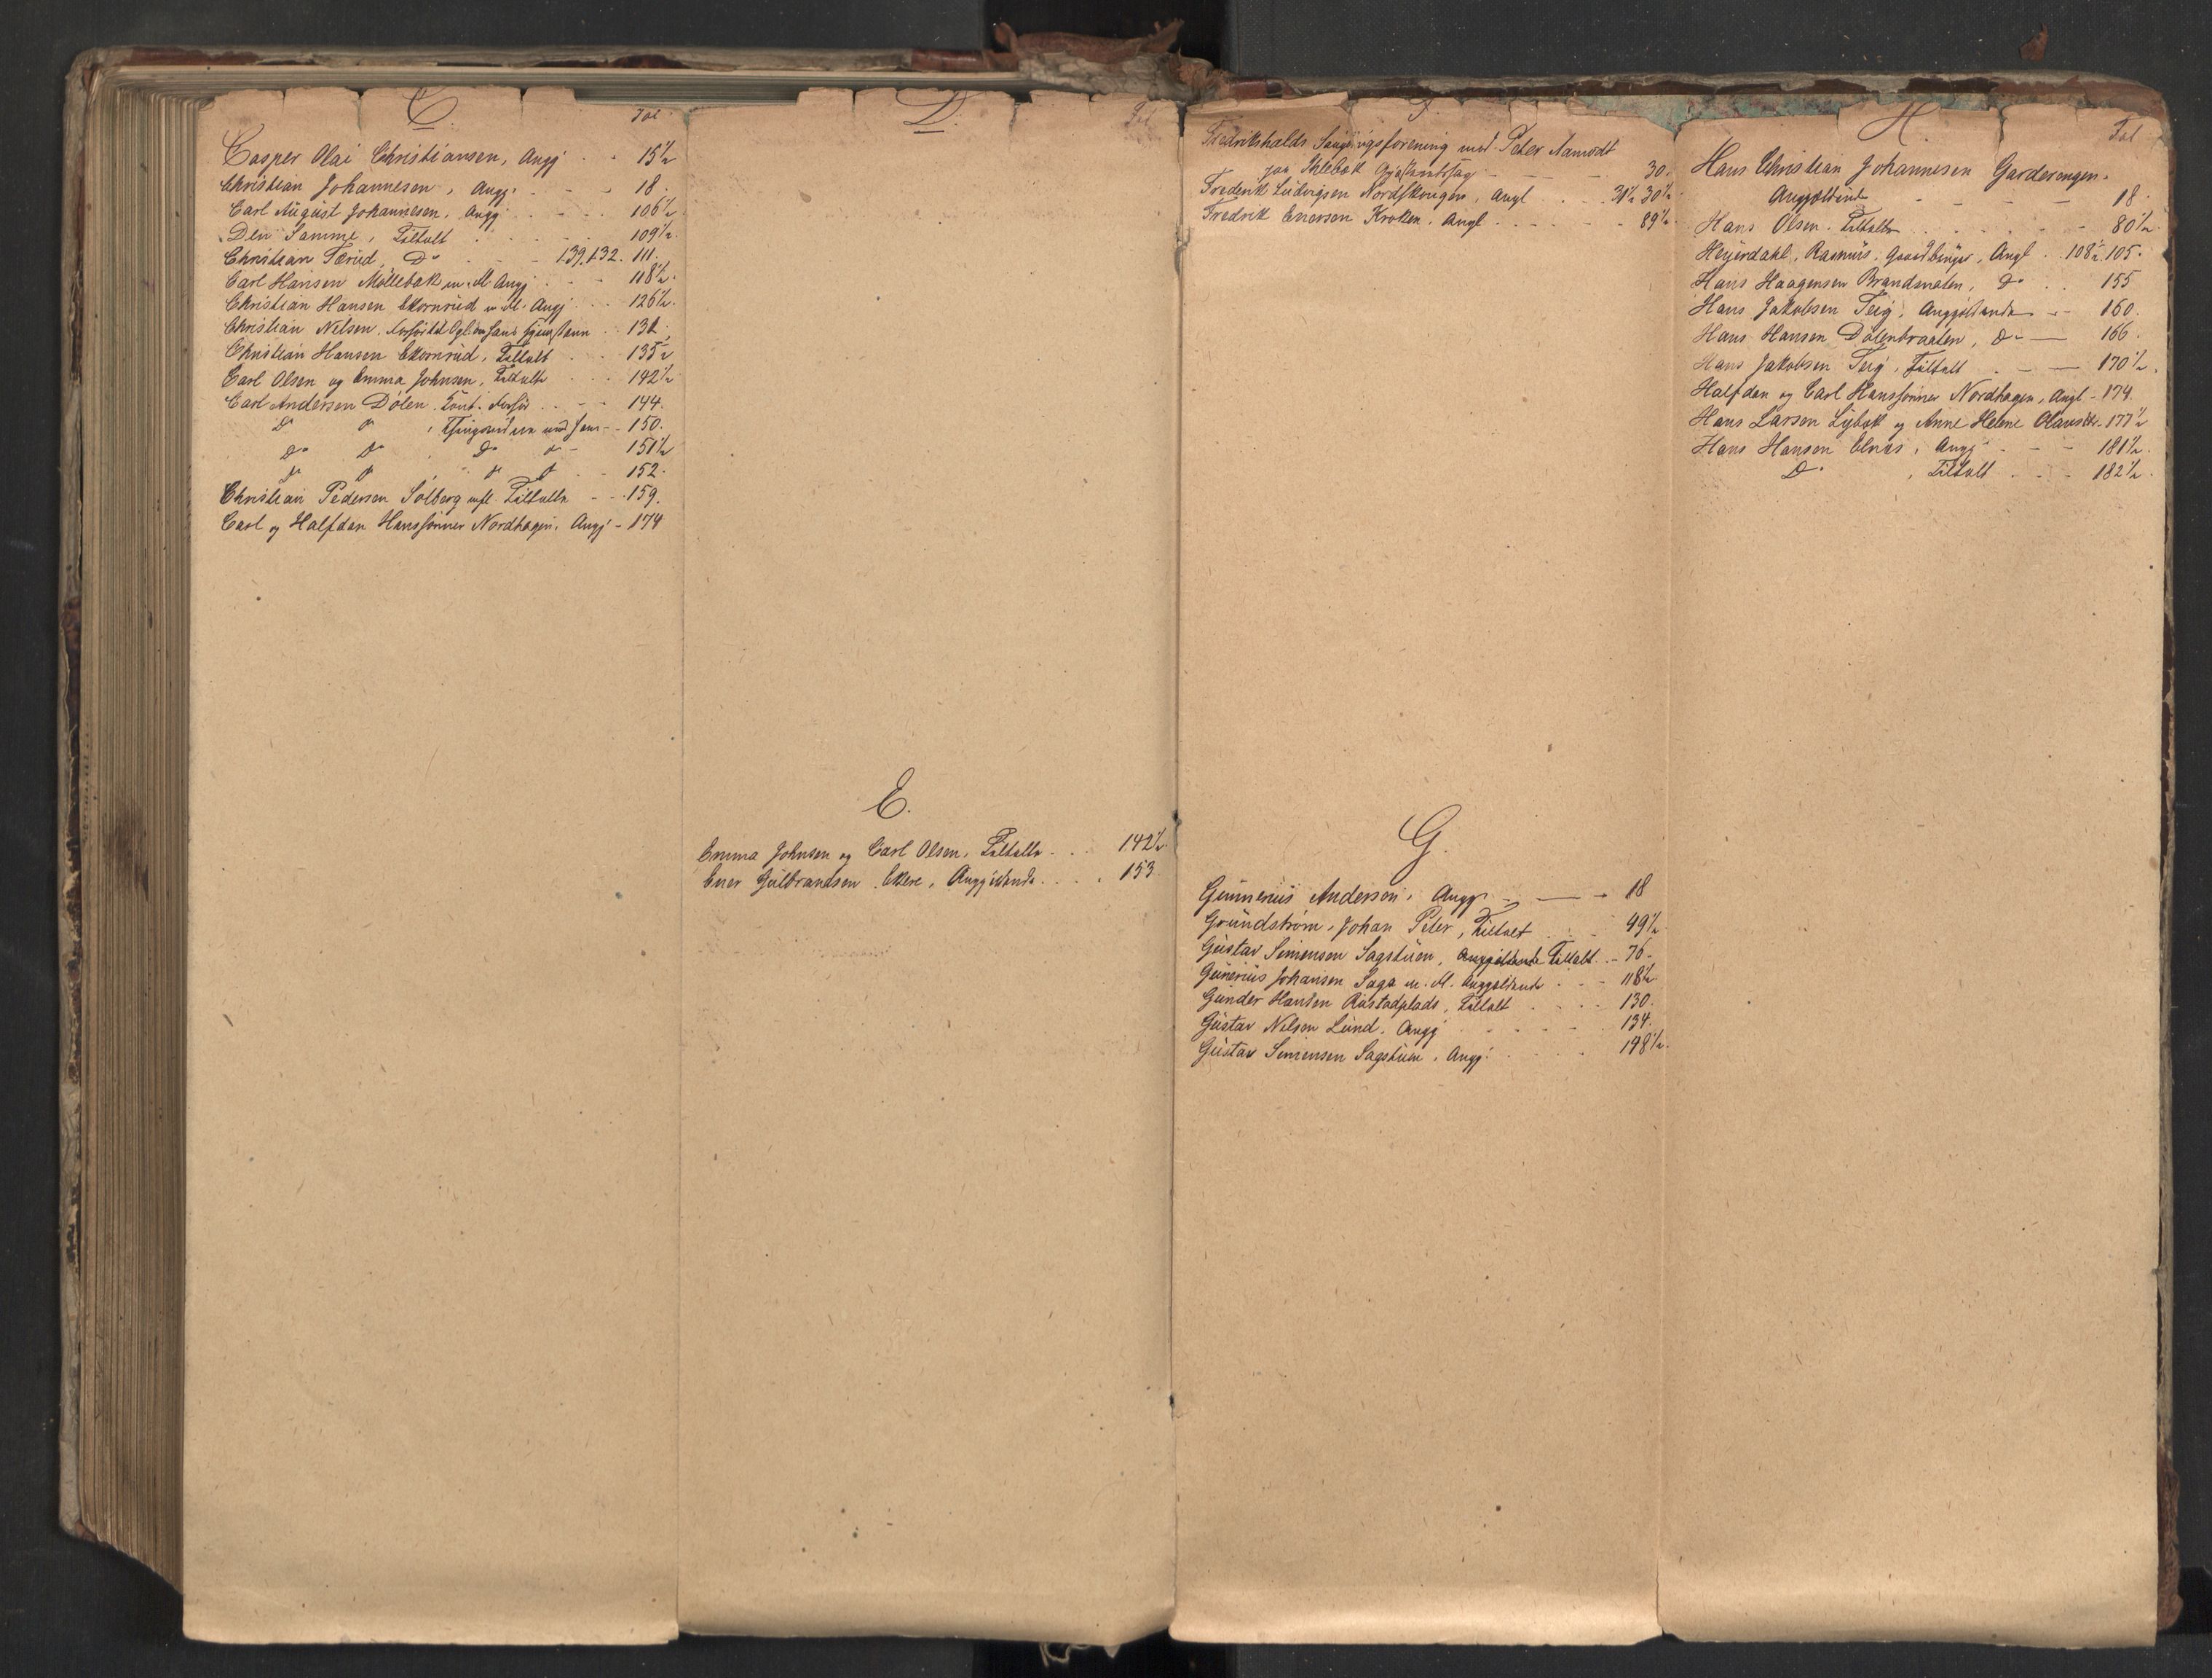 C.
Fol
Casper Olai Christiansen, Angj . . 15½
Christian Johannesen, Angj. - - - 18.
Carl August Johannesen, Angj . . - . . 106½
Den Samme, Tiltalt . . . . 109½.
Christian Tærud, Do - - - 139. 132. 111.
Carl Hansen Möllebak m. M. Angj . - - 118½.
Christian Hansen Ekornrud m. M. Angj . . . 126½.
Christian Nelsen,
Christian Hansen Ekornrud, Tiltalt . . . 135½
Carl Olsen og Emma Johnsen, Tiltalte . . . 142½
Carl Andersen Dölen . . - - 144.
Do Do, - - 150.
Do Do Do Do - 151½
Do Do Do Do - - 152.
Christian Pedersen Solberg mfl. Tiltalte - - 159.
Carl og Halfdan Hanssönner Nordhagen, Angj - 174
D.
Fol
E.
Emma Johnsen og Carl Olsen, Tiltalte - . . 142½
Ener Gulbrandsen Ekere, Anggjeldende . . . . 153.
Fredrikshalds med Peter Aamodt
paa - - - 30.
Frederik Ludvigsen Nordskougen, Angl . . . 31½ 30½.
Fredrik Enersen Krokken, Angl . . . - - 89½
G.
Gunnerius Anderson, Angj. - — - 18
Grundström, Johan Peter, Tiltalt . . - 49½
Gustav Simensen Sagstuen, Tiltalt. - 76.
Gunerius Johansen Saga m. M. Anggjeldende . . - 118½
Gunder Hansen Rustadplads, Tiltalt . . . . 130.
Gustav Nelson Lund, Angj . - - - - . 134.
Gustav Simensen Sagstuen, Angj. . . . . 148½.
H.
Fol
Hans Christian Johannesen Garderengen.
Anggjeldende - - - - 18.
Hans Olsen, Tiltalte . . . . - - 80½
Heyerdahl, Rasmus, Gaardbruger, Angl . . 108½. 105.
Hans Haagensen Brandsnaten, Do . . 155
Hans Jakobsen Teig, Anggjeldende - - 160.
Hans Hansen Dölenbraaten, Do — 166.
Hans Jakobsen Teig, Tiltalt . - — 170½.
Halfdan og Carl Hanssönner Nordhagen, Angl - 174.
Hans Larsen Lybæk og Anne Helene - 177½
Hans Hansen Elnæs, Angj - - - 181½.
Do, Tiltalt . . . 182½.